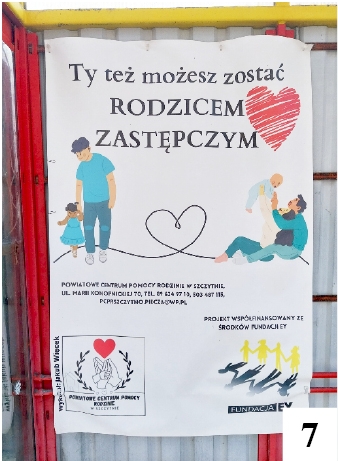 Ty też możesz zostać
RODZICEM
ZASTĘPCZYM
POWIATOWE CENTRUM POMOCY RODZINIE W SZCZYTNIE,
UL. MARII KONOPNICKIEJ 70, TEL. 89 624 97 10, 503 487 115,
PCPRSZCZYTNO.PIECZA@WP.PL
PROJEKT WSPÓŁFINANSOWANY ZE
ŚRODKÓW FUNDACJI EY
wykonał: Jakub Więcek
POWIATOWE CENTRUM POMOCY
RODZINIE
W SZCZYTNIE
FUNDACJA EY
7